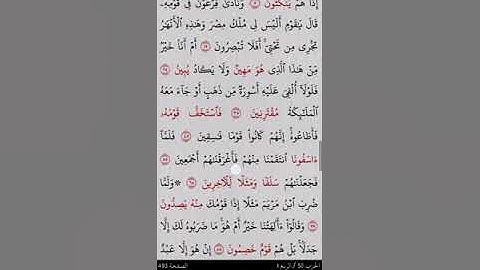 إِذَا هُمْ يَنكُثُونَ وَنَادَىٰ فِرْعَوْنُ فِي قَوْمِهِۦ
قَالَ يَٰقَوْمِ أَلَيْسَ لِي مُلْكُ مِصْرَ وَهَٰذِهِ ٱلْأَنْهَٰرُ
تَجْرِي مِن تَحْتِيٓ أَفَلَا تُبْصِرُونَ أَمْ أَنَا۠ خَيْرٌ
مِّنْ هَٰذَا ٱلَّذِي هُوَ مَهِينٌ وَلَا يَكَادُ يُبِينُ
فَلَوْلَآ أُلْقِيَ عَلَيْهِ أَسْوِرَةٌ مِّن ذَهَبٍ أَوْ جَآءَ مَعَهُ
ٱلْمَلَٰٓئِكَةُ مُقْتَرِنِينَ فَٱسْتَخَفَّ قَوْمَهُۥ
فَأَطَاعُوهُ إِنَّهُمْ كَانُوا۟ قَوْمًا فَٰسِقِينَ فَلَمَّآ
ءَاسَفُونَا ٱنتَقَمْنَا مِنْهُمْ فَأَغْرَقْنَٰهُمْ أَجْمَعِينَ
فَجَعَلْنَٰهُمْ سَلَفًا وَمَثَلًا لِّلْءَاخِرِينَ ۞ وَلَمَّا
ضُرِبَ ٱبْنُ مَرْيَمَ مَثَلًا إِذَا قَوْمُكَ مِنْهُ يَصِدُّونَ
وَقَالُوٓا۟ ءَأَٰلِهَتُنَا خَيْرٌ أَمْ هُوَ مَا ضَرَبُوهُ لَكَ إِلَّا
جَدَلًۢا بَلْ هُمْ قَوْمٌ خَصِمُونَ إِنْ هُوَ إِلَّا عَبْدٌ
الحزب 50 / الربع الصفحة 493